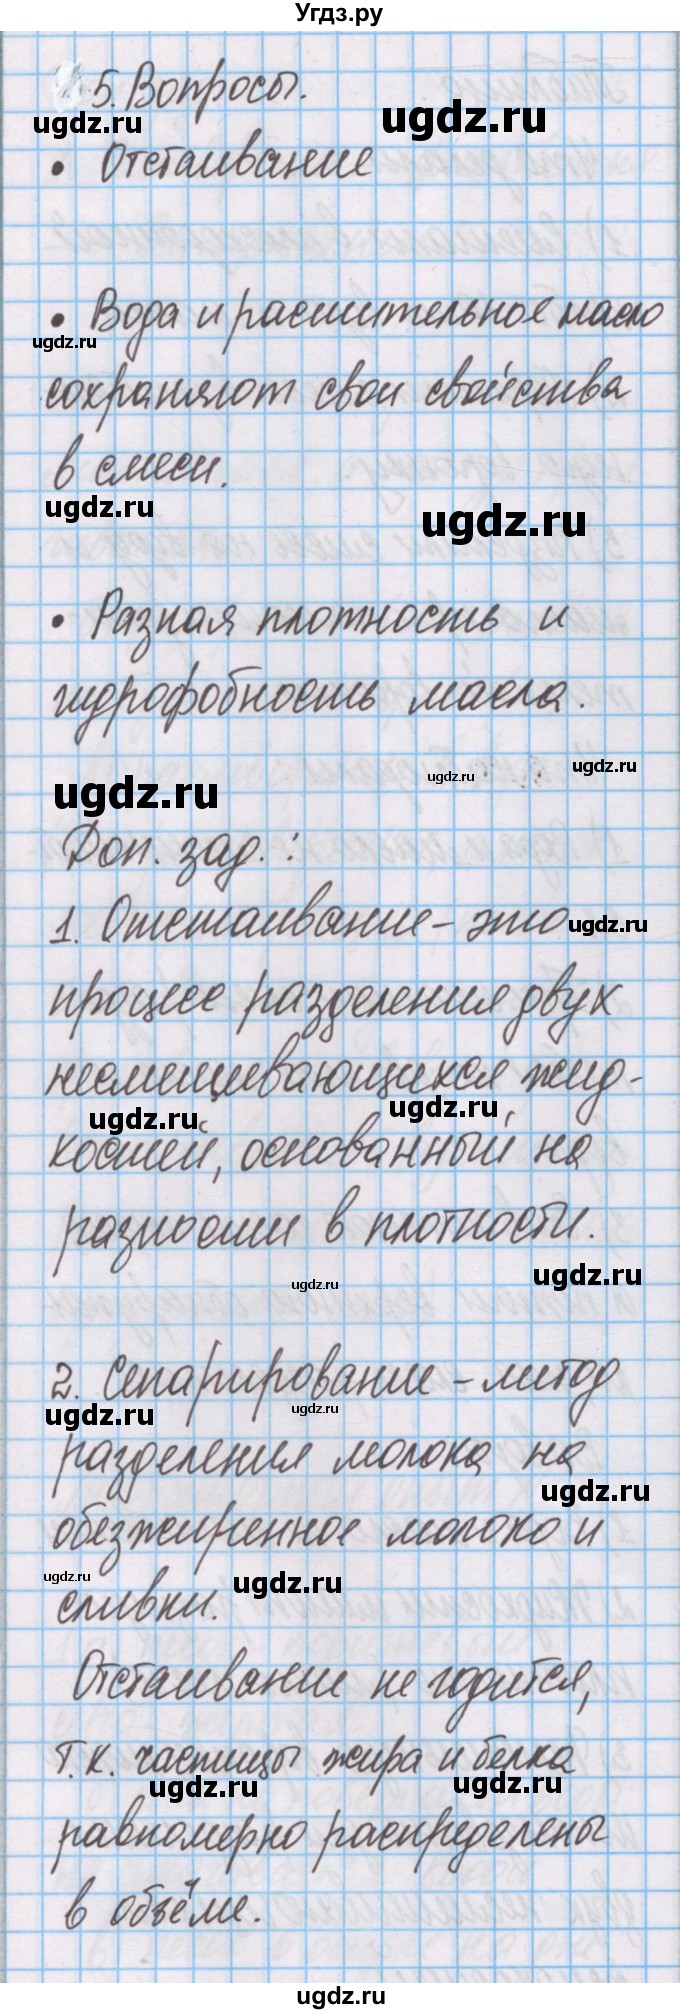 Угдз.ру
5. Вопросы.
ugdz.ru ugdz.ru
• Отстаивание
• Вода и растительное масло
ugdz.ru
сохраняют свои свойства
в смеси.
ugdz.ru ugdz.ru
• Разная плотность и
гидрофобность масла.
ugdz.ru ugdz.ru ugdz.ru
Доп. зад.:
1. Отстаивание - это
ugdz.ru
процесс разделения двух
несмешивающихся жид-
ugdz.ru ugdz.ru
костей, основанный на
разности в плотности.
ugdz.ru ugdz.ru
2. Сепарирование - метод
ugdz.ru ugdz.ru
разделения молока на
ugdz.ru
обезжиренное молоко и
ugdz.ru ugdz.ru
сливки.
Отстаивание не годится,
т.к. частицы жира и белка
ugdz.ru ugdz.ru
равномерно распределены
в объёме.
ugdz.ru